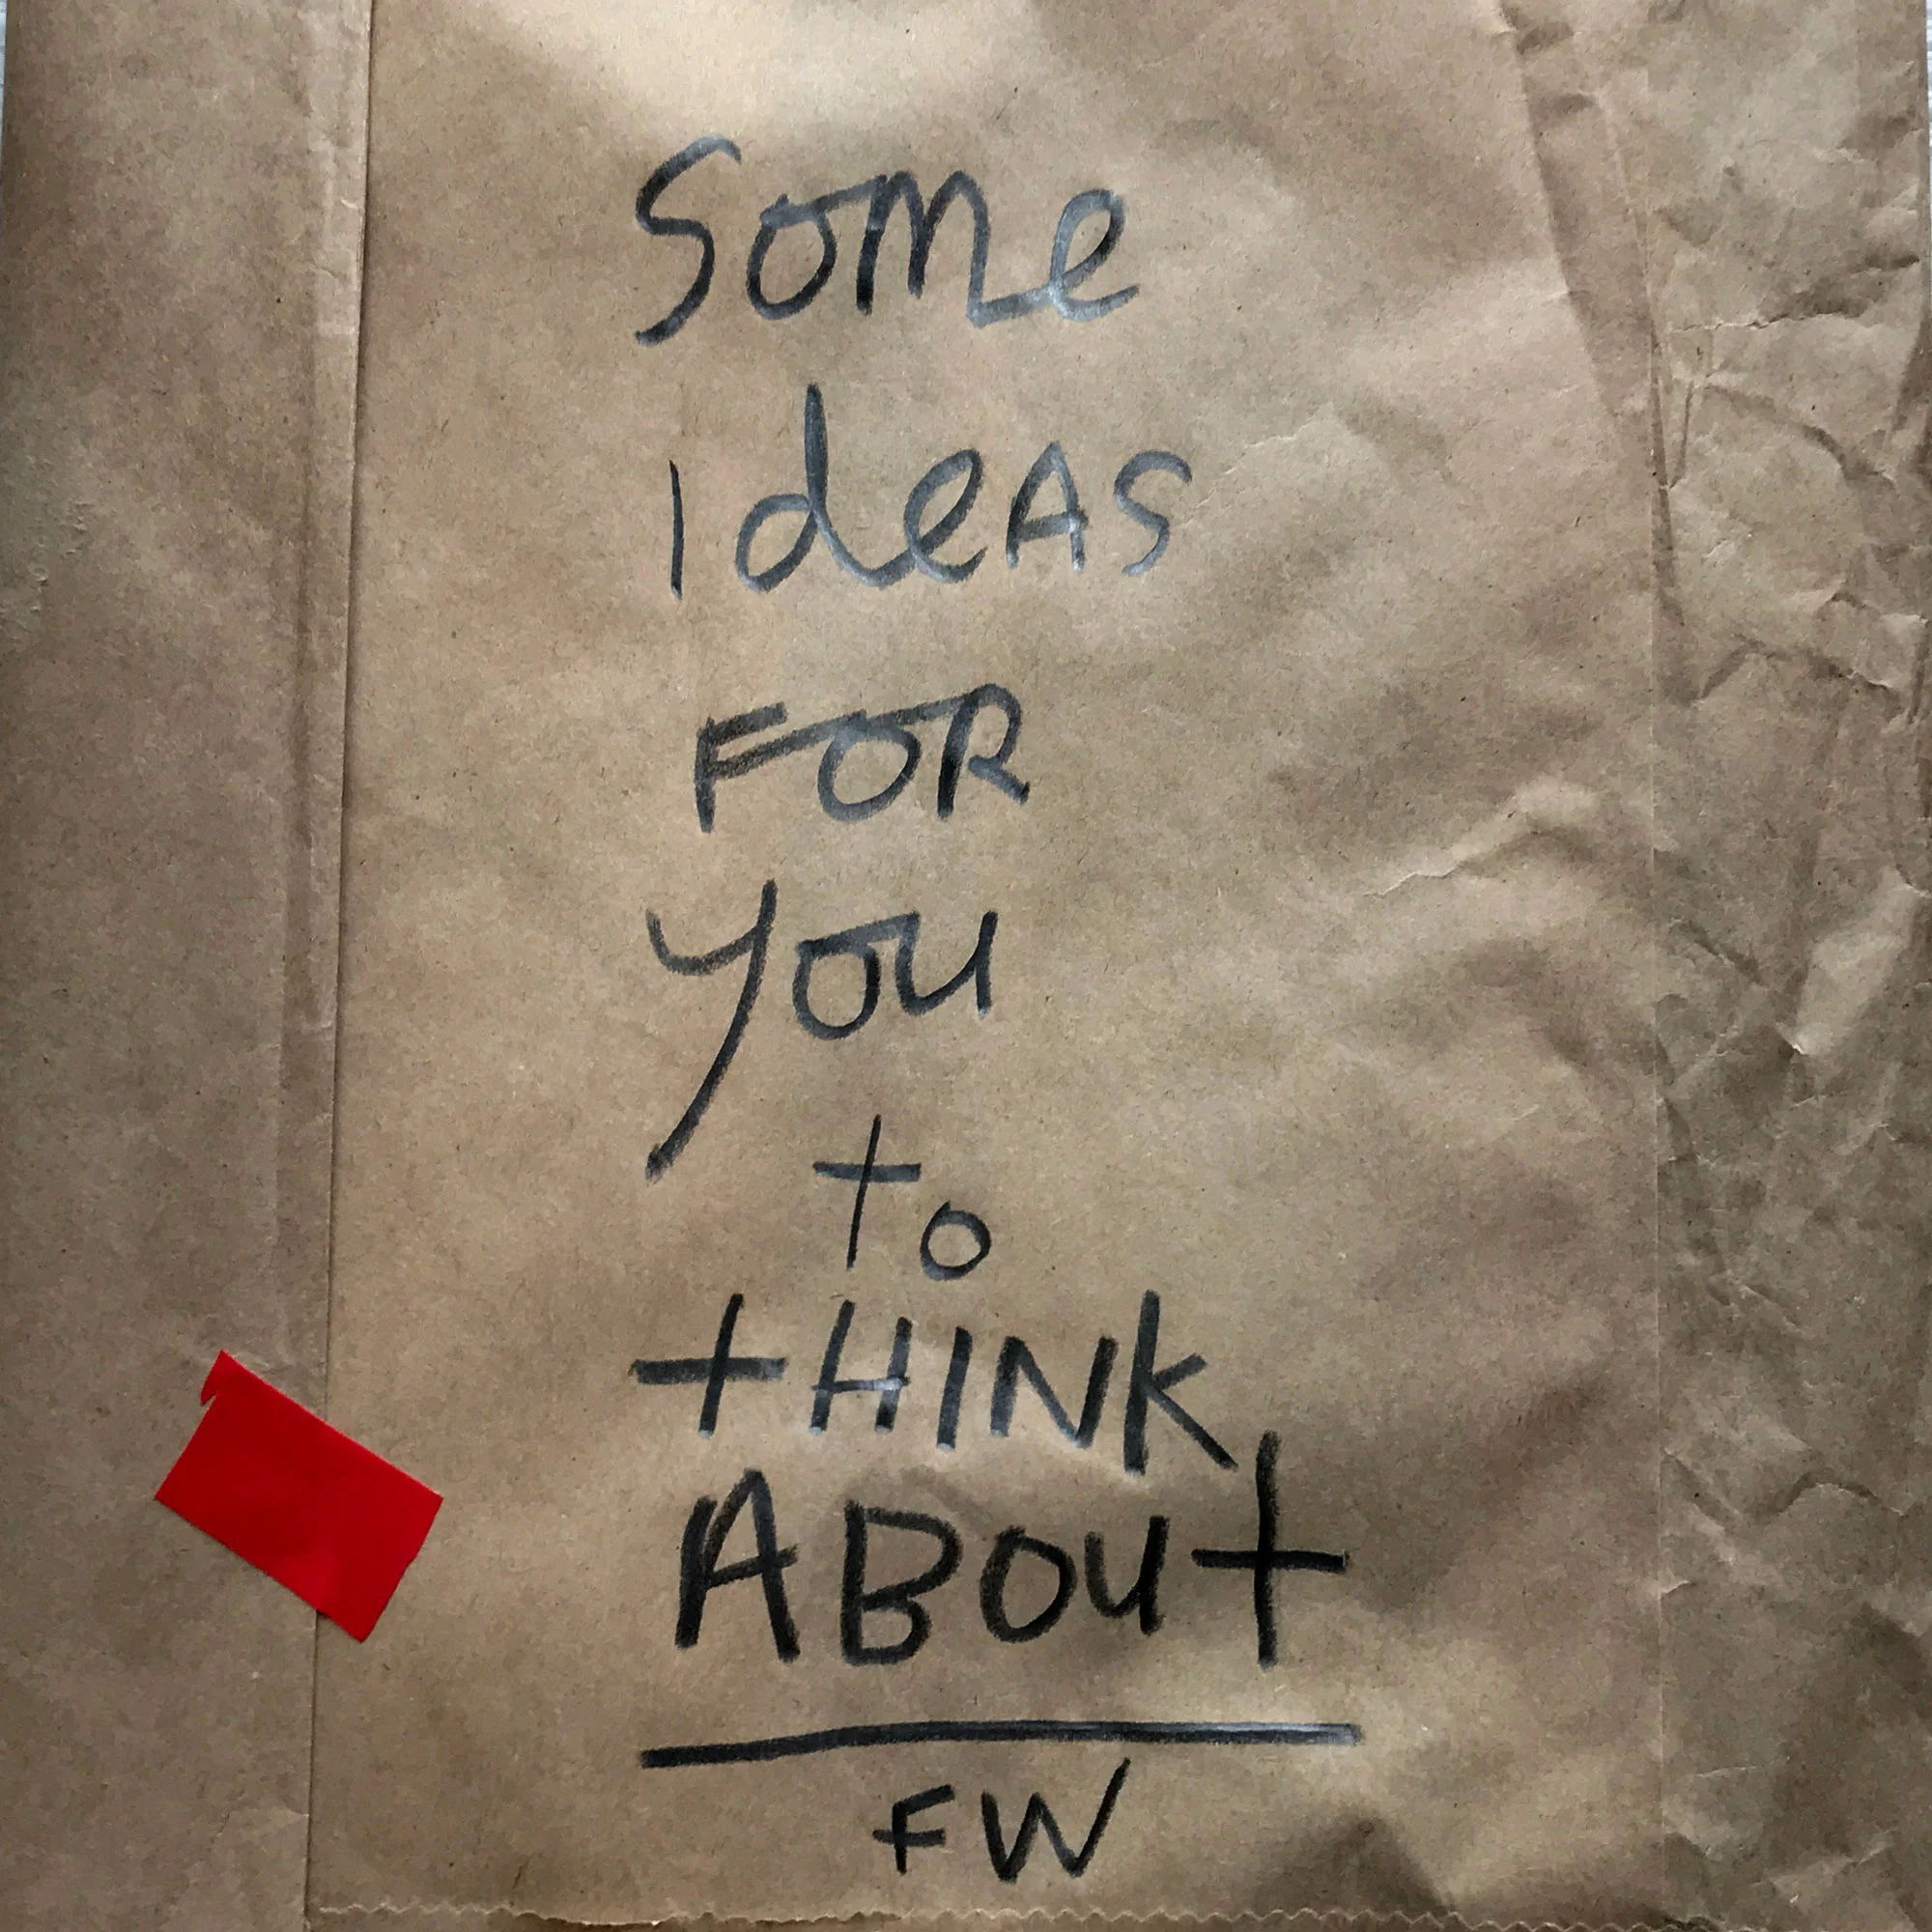 Some
IdeAS
FOR
you
to
tHINK
ABOut
FW